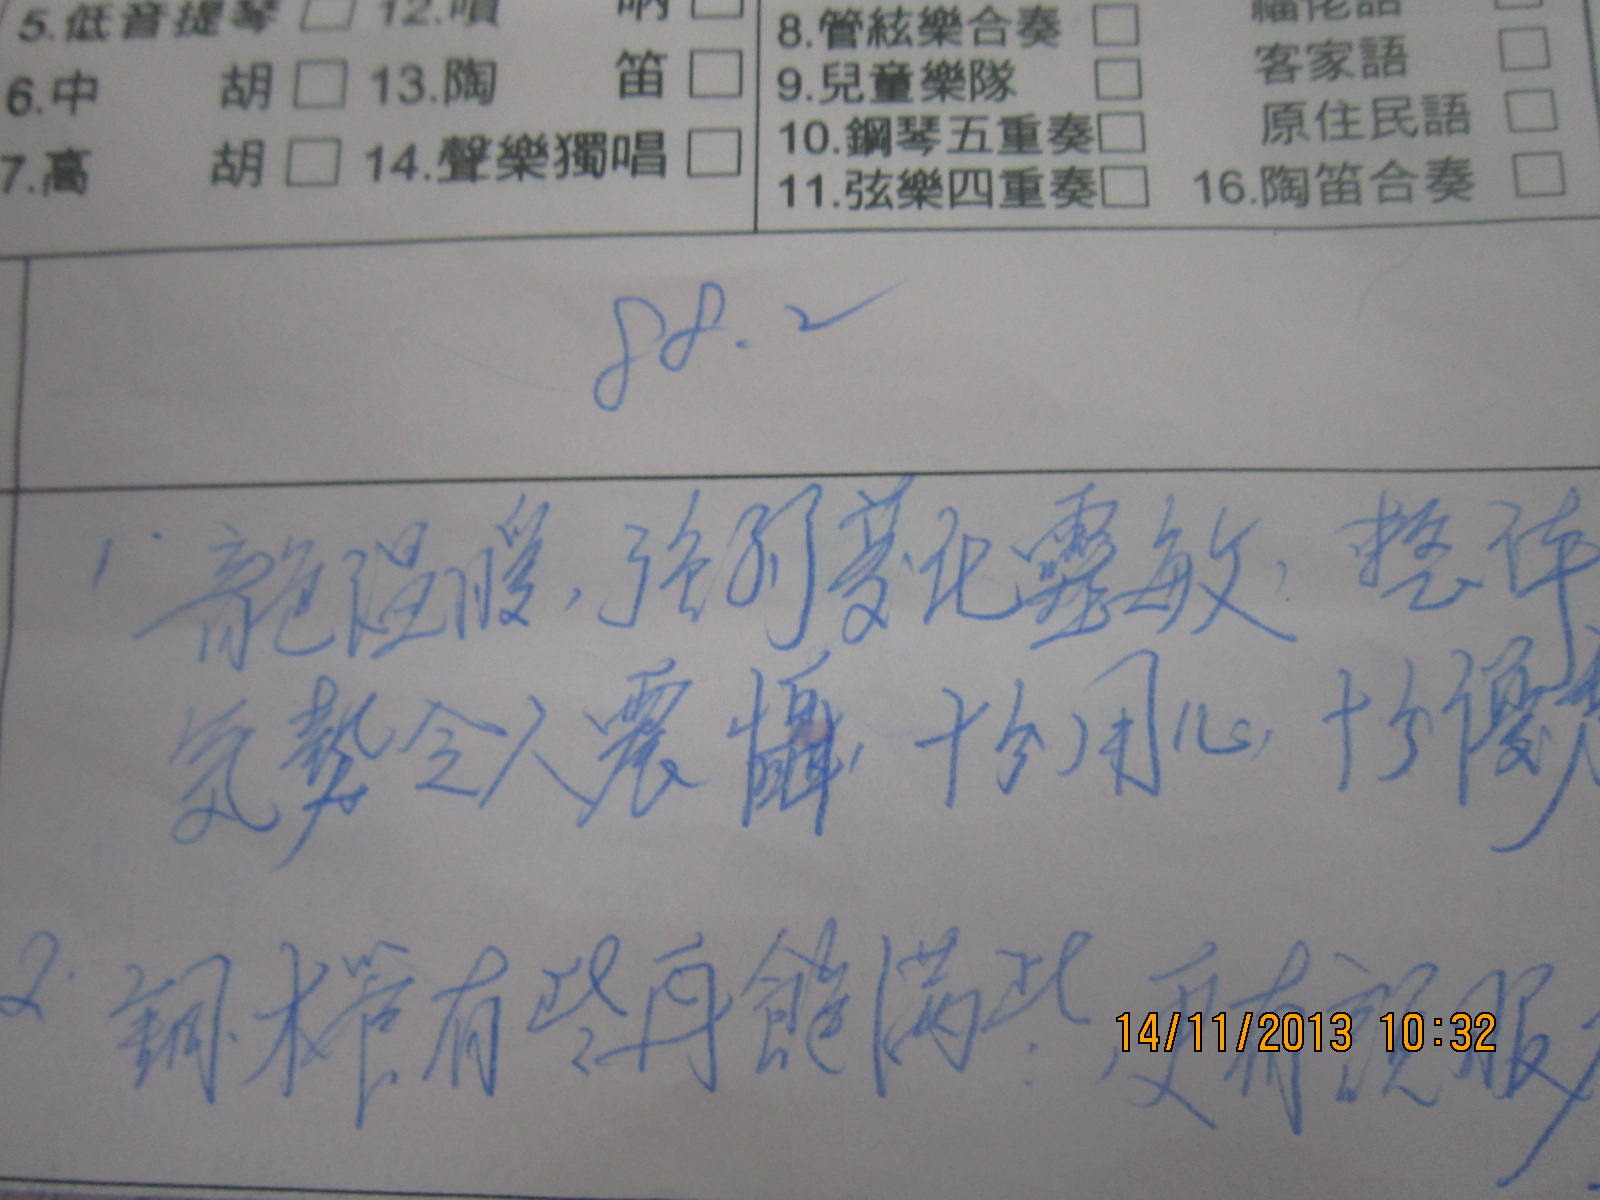 5.低音提琴 □ 12.嗩 吶 □
6.中 胡 □ 13.陶 笛 □
7.高 胡 □ 14.聲樂獨唱 □
福佬語 □
8.管絃樂合奏 □ 客家語 □
9.兒童樂隊 □ 原住民語 □
10.鋼琴五重奏 □
11.弦樂四重奏 □ 16.陶笛合奏 □
88.2
1. 音色溫暖,強弱變化靈敏,整体
气勢令人震懾,十分用心,十分優
2. 銅木管有些再飽滿些,更有說服
14/11/2013 10:32